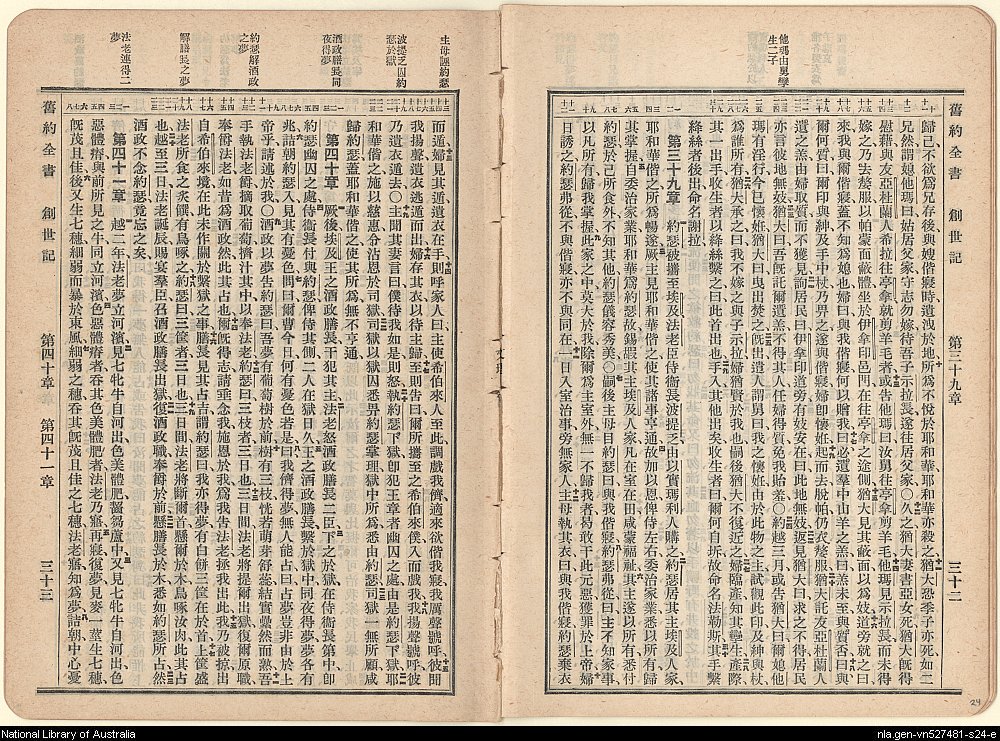 舊約全書 創世記 第三十九章 三十二
他瑪由男孿生二子
歸己不欲爲兄存後與嫂偕寢時遺洩於地所爲不悅於耶和華耶和華亦殺之猶大恐季子亦死如二
兄然謂媳他瑪曰姑居父家守志勿嫁待吾子示拉長遂往居父家〇久之猶大妻書亞女死猶大旣得
慰藉與友亞杜蘭人希拉往亭拿就剪羊毛者或告他瑪曰汝舅往亭拿剪羊毛他瑪見示拉長而未得
嫁之乃去嫠服以帕蒙面蔽體坐於伊拿印邑門在往亭拿之途側猶大見其蔽面以爲妓道旁就之曰
來我與爾偕寢蓋不知爲媳也婦曰與我偕寢何以贈我曰必選羣中山羊之羔曰羔未至與質否曰與
爾何質曰爾印與紳及手中杖乃畀之遂與偕寢婦卽懷姙起而去脫帕仍衣嫠服猶大託友亞杜蘭人
遺之羔由婦取質而不獲見詢居民曰伊拿印道旁有妓安在曰此地無妓返見猶大曰求之不得居民
亦言彼地無妓猶大曰吾旣託爾遺羔不得其人任婦得質免我貽羞〇約越三月或告猶大曰爾媳他
瑪有淫行今已懷姙猶大曰曳出焚之旣出遣人謂舅曰我之懷姙由於此物之主試觀此印及紳與杖
爲誰所有猶大承之曰我不嫁之與子示拉婦猶賢於我也嗣後猶大不復近之婦臨產知其孿生產際
其一出手收生者以絳絲繫之曰此首出也手入其他出矣收生者曰爾何自坼故命名法勒斯其手繫
絳絲者後出命名謝拉
第三十九章 約瑟被攜至埃及法老臣侍衞長波提乏由以實瑪利人購之約瑟居其主埃及人家
耶和華偕之所爲暢遂厥主見耶和華偕之使其諸事亨通故加以恩俾侍左右委治家業悉以所有歸
其掌握自委治家業耶和華爲約瑟故錫嘏其主埃及人家凡在室在田咸蒙福祉其主遂以所有悉付
約瑟己所食外不知其他約瑟儀容秀美〇嗣後主母目約瑟曰與我偕寢約瑟弗從曰主不知家事
以凡所有歸我掌握此家之中莫大於我除爾爲主室外無一不歸我者曷敢行此元惡獲罪於上帝婦
日誘之約瑟弗從不與偕寢亦不與同在一日入室治事旁無家人主母執其衣曰與我偕寢約瑟棄衣
舊約全書 創世記 第四十章 第四十一章 三十三
主母誣約瑟
波提乏囚約瑟於獄
酒政膳長同夜得夢
約瑟解酒政之夢
解膳長之夢
法老連得二夢
而遁婦見其遁遺衣在手則呼家人曰主使希伯來人至此調戲我儕適來欲偕我寢我厲聲號呼彼聞
我揚聲遺衣逃遁而出婦存其衣以待主歸主至則告曰爾所攜至之希伯來僕入而戲我我揚聲號呼彼
乃遺衣遁去〇主聞其妻言曰僕待我如是則怒執約瑟下獄卽犯王章者幽囚之處由是約瑟下獄耶
和華偕之施以慈惠分沾恩於司獄司獄以獄囚悉畀約瑟掌理獄中所爲悉由約瑟司獄一無所顧咸
歸約瑟蓋耶和華偕之使其所爲無不亨通
第四十章 厥後埃及王之酒政膳長干犯其主法老怒酒政膳長二臣下之於獄在侍衞長第中卽
約瑟幽囚之處侍衞長付與約瑟俾侍其側二人在獄日久王之酒政膳長繫於獄中同夜得夢夢各有
兆詰朝約瑟入見其有憂色問曰爾曹今日何有憂色若是曰我儕得夢無人能占曰占夢豈非由於上
帝乎請述於我〇酒政以夢告約瑟曰吾夢有葡萄樹於前樹有三枝恍若萌芽舒蕊結實纍然而熟吾
手執法老爵摘取葡萄擠汁其中以奉法老約瑟曰占此夢曰三枝者三日也三日間法老將提爾出獄復爾原職
奉爵法老如昔爲酒政然此其占也爾旣得志請垂念我施恩於我爲我告法老拯我出此我乃被掠出
自希伯來境在此未作關於繫獄之事膳長見其占吉謂約瑟曰我亦得夢有白餅三筐在於首上筐盛
法老所食之炙饌有鳥啄之約瑟曰三筐者三日也三日間法老將斷爾首懸爾於木鳥啄汝肉此其占
也越至三日法老誕辰賜宴羣臣召酒政膳長出獄復酒政職奉爵於前懸膳長於木悉如約瑟所占然
酒政不念約瑟竟忘之矣
第四十一章 越二年法老夢立河濱見七牝牛自河出色美體肥齧芻蘆中又見七牝牛自河出色
惡體瘠與前所見之牛同立河濱色惡體瘠者吞其色美體肥者法老乃寤再寢復夢見麥一莖生七穗
旣茂且佳後又生七穗細弱而暴於東風細弱之穗吞其旣茂且佳之七穗法老寤知爲夢詰朝中心憂
24
National Library of Australia
nla.gen-vn527481-s24-e